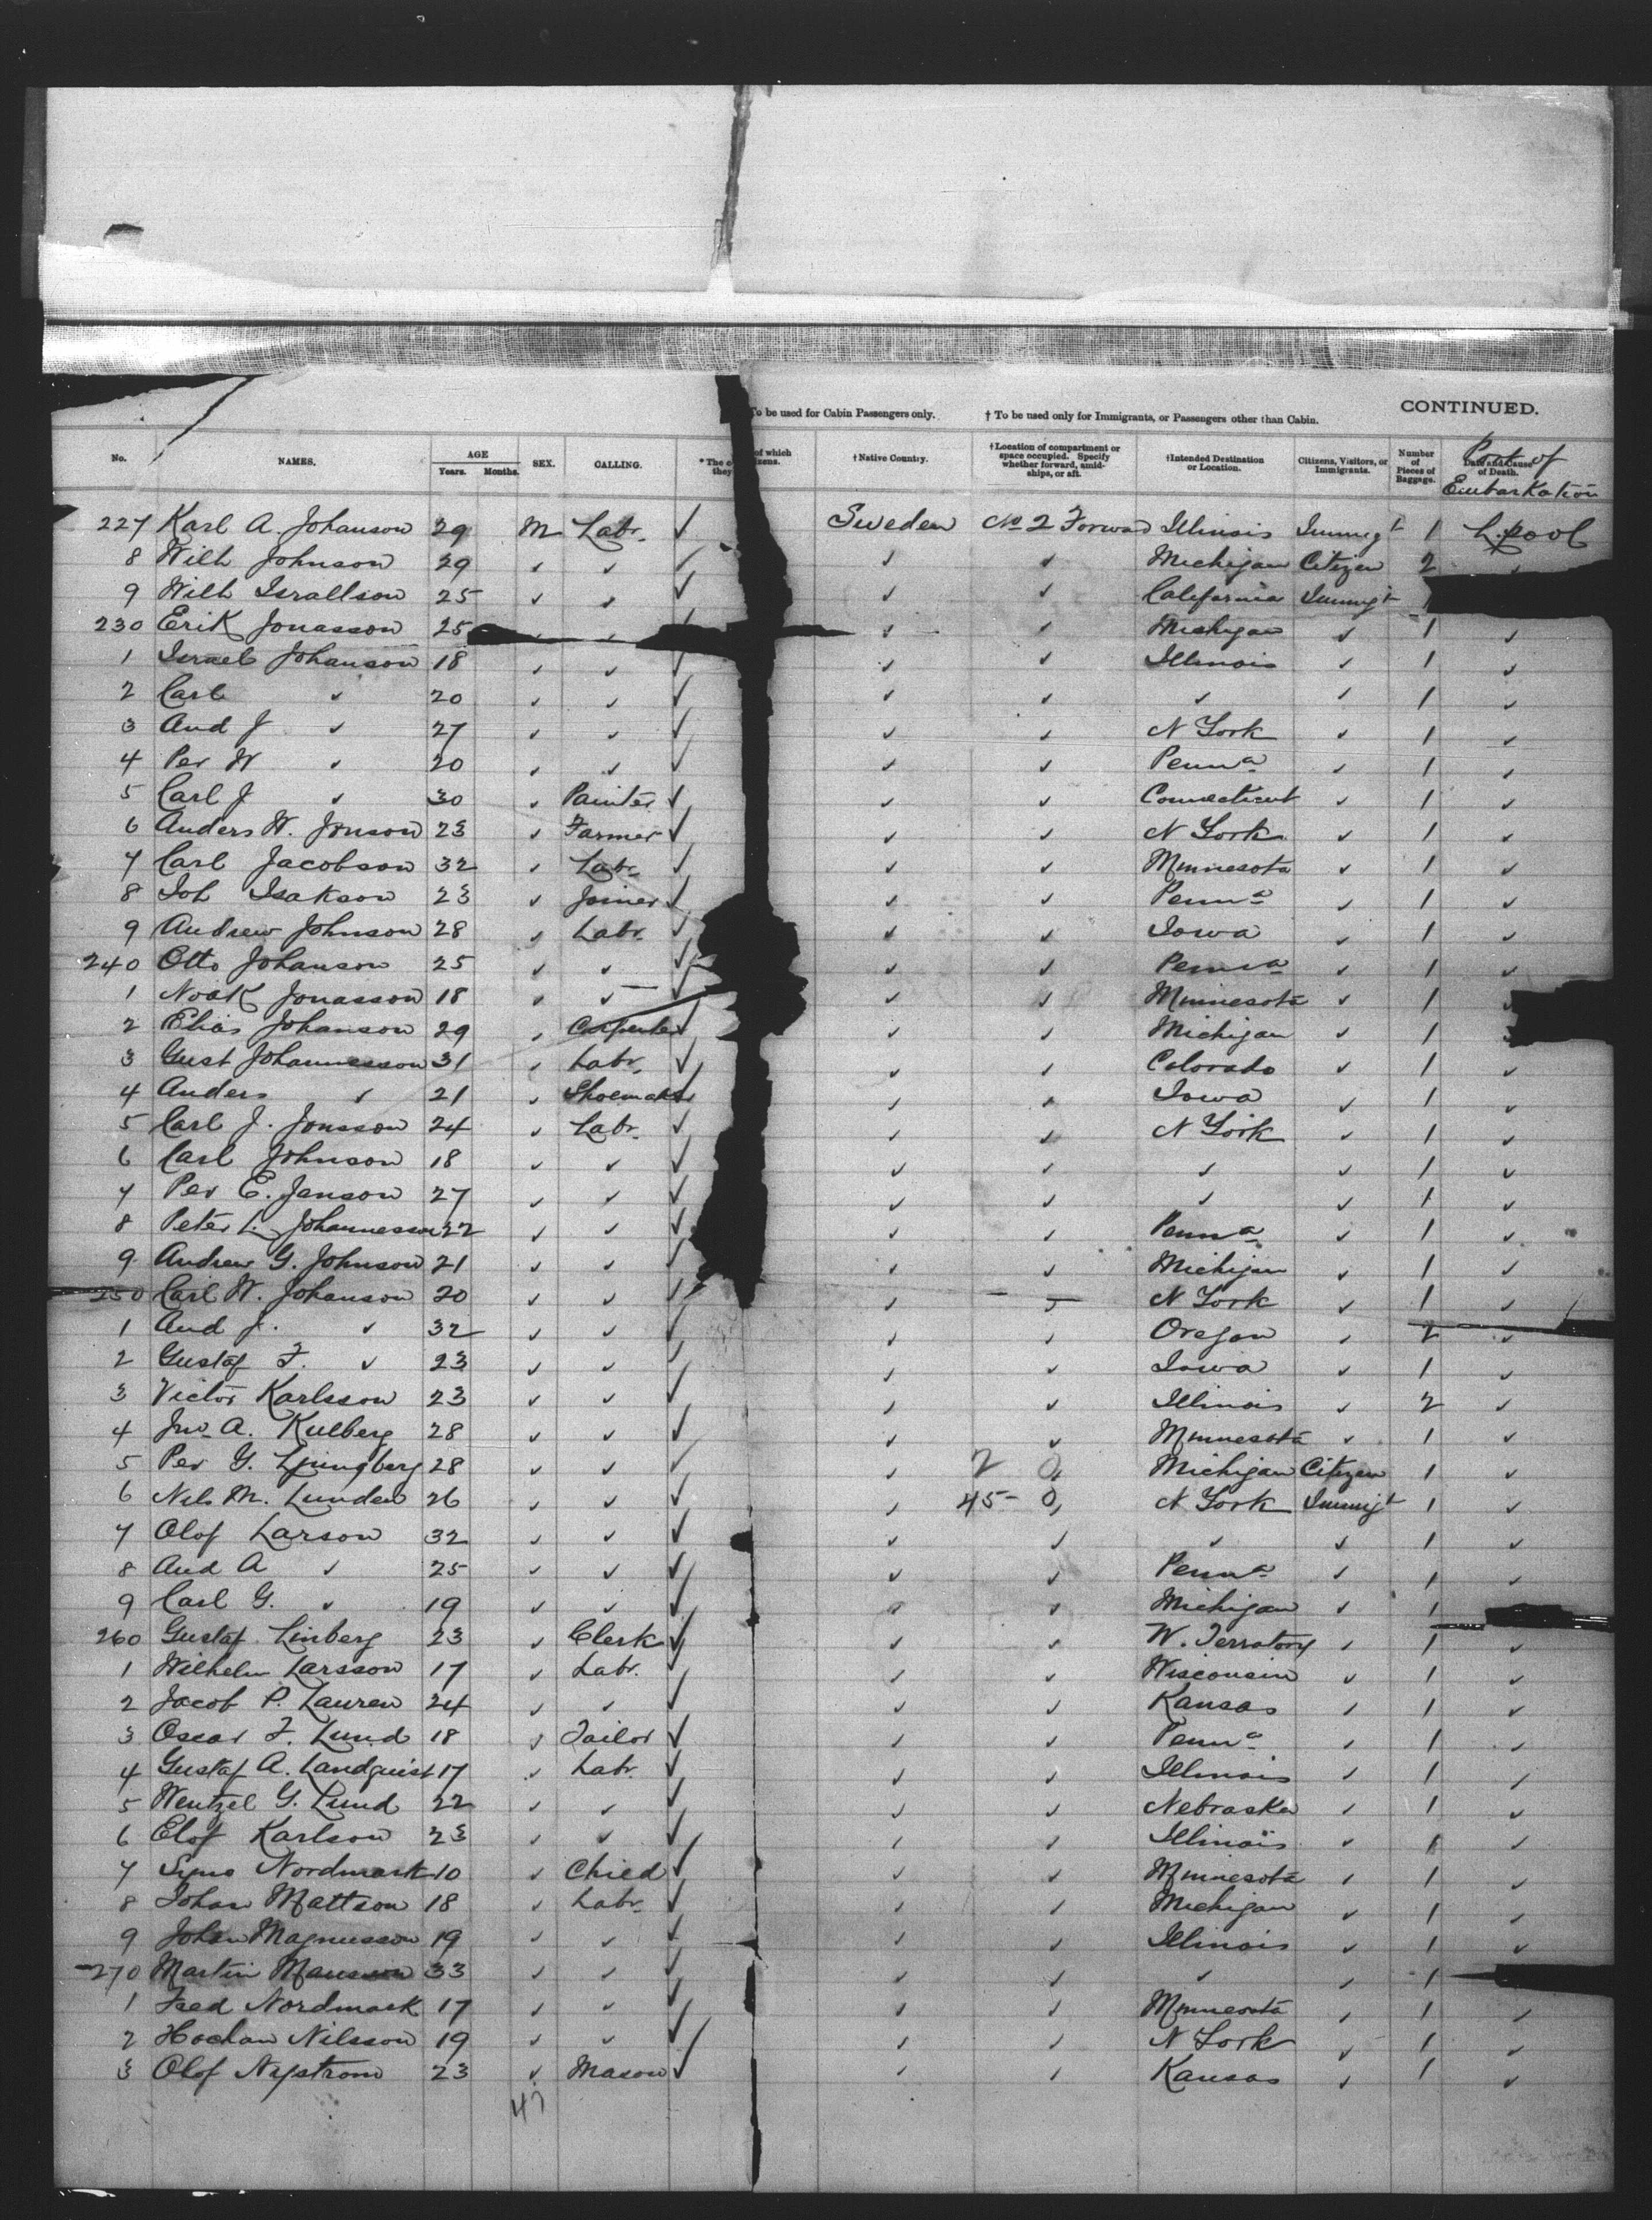 To be used for Cabin Passengers only. † To be used only for Immigrants, or Passengers other than Cabin. CONTINUED.
No. NAMES. AGE Years. Months. SEX. CALLING. *The c they of which izens. †Native Country. †Location of compartment or space occupied. Specify whether forward, amid-ships, or aft. †Intended Destination or Location. Citizens, Visitors, or Immigrants. Number of Pieces of Baggage. Date and Cause of Death. Port of Embarkation
227 Karl A. Johanson 29 M Labr. ✓ Sweden No 2 Forward Illinois Immigt 1 L.pool
8 Wilh Johnson 29 ✓ ✓ ✓ ✓ ✓ Michigan Citizen 2 ✓
9 Wilh Israllson 25 ✓ ✓ ✓ ✓ ✓ California Immigt
230 Erik Jonasson 25 ✓ ✓ ✓ ✓ ✓ Michigan ✓ 1 ✓
1 Israel Johanson 18 ✓ ✓ ✓ ✓ ✓ Illinois ✓ 1 ✓
2 Carl ✓ 20 ✓ ✓ ✓ ✓ ✓ ✓ ✓ 1 ✓
3 And J ✓ 27 ✓ ✓ ✓ ✓ ✓ N York ✓ 1 ✓
4 Per W ✓ 20 ✓ ✓ ✓ ✓ ✓ Penna ✓ 1 ✓
5 Carl J ✓ 30 ✓ Painter ✓ ✓ ✓ Connecticut ✓ 1 ✓
6 Anders W. Jonson 23 ✓ Farmer ✓ ✓ ✓ N York ✓ 1 ✓
7 Carl Jacobson 32 ✓ Labr. ✓ ✓ ✓ Minnesota ✓ 1 ✓
8 Joh Isakson 23 ✓ Joiner ✓ ✓ ✓ Penna ✓ 1 ✓
9 Andrew Johnson 28 ✓ Labr. ✓ ✓ ✓ Iowa ✓ 1 ✓
240 Otto Johanson 25 ✓ ✓ ✓ ✓ ✓ Penna ✓ 1 ✓
1 Noak Jonasson 18 ✓ ✓ ✓ ✓ ✓ Minnesota ✓ 1 ✓
2 Elias Johanson 29 ✓ Carpenter ✓ ✓ ✓ Michigan ✓ 1 ✓
3 Gust Johannesson 31 ✓ Labr. ✓ ✓ ✓ Colorado ✓ 1 ✓
4 Anders ✓ 21 ✓ Shoemaker ✓ ✓ ✓ Iowa ✓ 1 ✓
5 Carl J. Jonsson 24 ✓ Labr. ✓ ✓ ✓ N York ✓ 1 ✓
6 Carl Johnson 18 ✓ ✓ ✓ ✓ ✓ ✓ ✓ 1 ✓
7 Per E. Janson 27 ✓ ✓ ✓ ✓ ✓ ✓ ✓ 1 ✓
8 Peter L. Johannesson 22 ✓ ✓ ✓ ✓ ✓ Penna ✓ 1 ✓
9 Andrew G. Johnson 21 ✓ ✓ ✓ ✓ ✓ Michigan ✓ 1 ✓
250 Carl W. Johanson 20 ✓ ✓ ✓ ✓ ✓ N York ✓ 1 ✓
1 And J. ✓ 32 ✓ ✓ ✓ ✓ ✓ Oregon ✓ 2 ✓
2 Gustaf F. ✓ 23 ✓ ✓ ✓ ✓ ✓ Iowa ✓ 1 ✓
3 Victor Karlsson 23 ✓ ✓ ✓ ✓ ✓ Illinois ✓ 2 ✓
4 Jno A. Kulberg 28 ✓ ✓ ✓ ✓ ✓ Minnesota ✓ 1 ✓
5 Per G. Ljungberg 28 ✓ ✓ ✓ ✓ 2 Michigan Citizen 1 ✓
6 Nels M. Lunden 26 ✓ ✓ ✓ ✓ 45 N York Immigt 1 ✓
7 Olof Larson 32 ✓ ✓ ✓ ✓ ✓ ✓ ✓ 1 ✓
8 And A ✓ 25 ✓ ✓ ✓ ✓ ✓ Penna ✓ 1 ✓
9 Carl G. ✓ 19 ✓ ✓ ✓ ✓ ✓ Michigan ✓ 1
260 Gustaf Linberg 23 ✓ Clerk ✓ ✓ ✓ W. Terratory ✓ 1 ✓
1 Wilhelm Larsson 17 ✓ Labr. ✓ ✓ ✓ Wisconsin ✓ 1 ✓
2 Jacob P. Lauren 24 ✓ ✓ ✓ ✓ ✓ Kansas ✓ 1 ✓
3 Oscar F. Lund 18 ✓ Tailor ✓ ✓ ✓ Penna ✓ 1 ✓
4 Gustaf A. Landquist 17 ✓ Labr. ✓ ✓ ✓ Illinois ✓ 1 ✓
5 Wentzel G. Lund 22 ✓ ✓ ✓ ✓ ✓ Nebraska ✓ 1 ✓
6 Elof Karlson 23 ✓ ✓ ✓ ✓ ✓ Illinois ✓ 1 ✓
7 Nordmark 10 ✓ Chied ✓ ✓ ✓ Minnesota ✓ 1 ✓
8 Johan Mattson 18 ✓ Labr. ✓ ✓ ✓ Michigan ✓ 1 ✓
9 Johan Magnusson 19 ✓ ✓ ✓ ✓ ✓ Illinois ✓ 1 ✓
270 Martin Manson 33 ✓ ✓ ✓ ✓ ✓ ✓ ✓ 1
1 Fred Nordmark 17 ✓ ✓ ✓ ✓ ✓ Minnesota ✓ 1 ✓
2 Hochan Nilsson 19 ✓ ✓ ✓ ✓ ✓ N York ✓ 1 ✓
3 Olof Nystrom 23 ✓ Mason ✓ ✓ ✓ Kansas ✓ 1 ✓
47